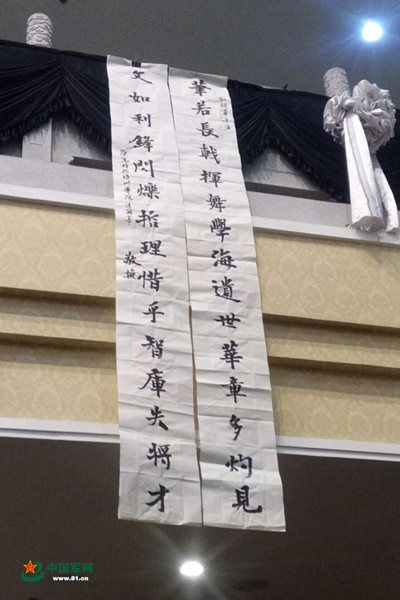 筆若長戟揮舞學海遺世華章多灼見
文如利鋒閃爍哲理惜乎智庫失將才
敬挽
中国军网
www.81.cn